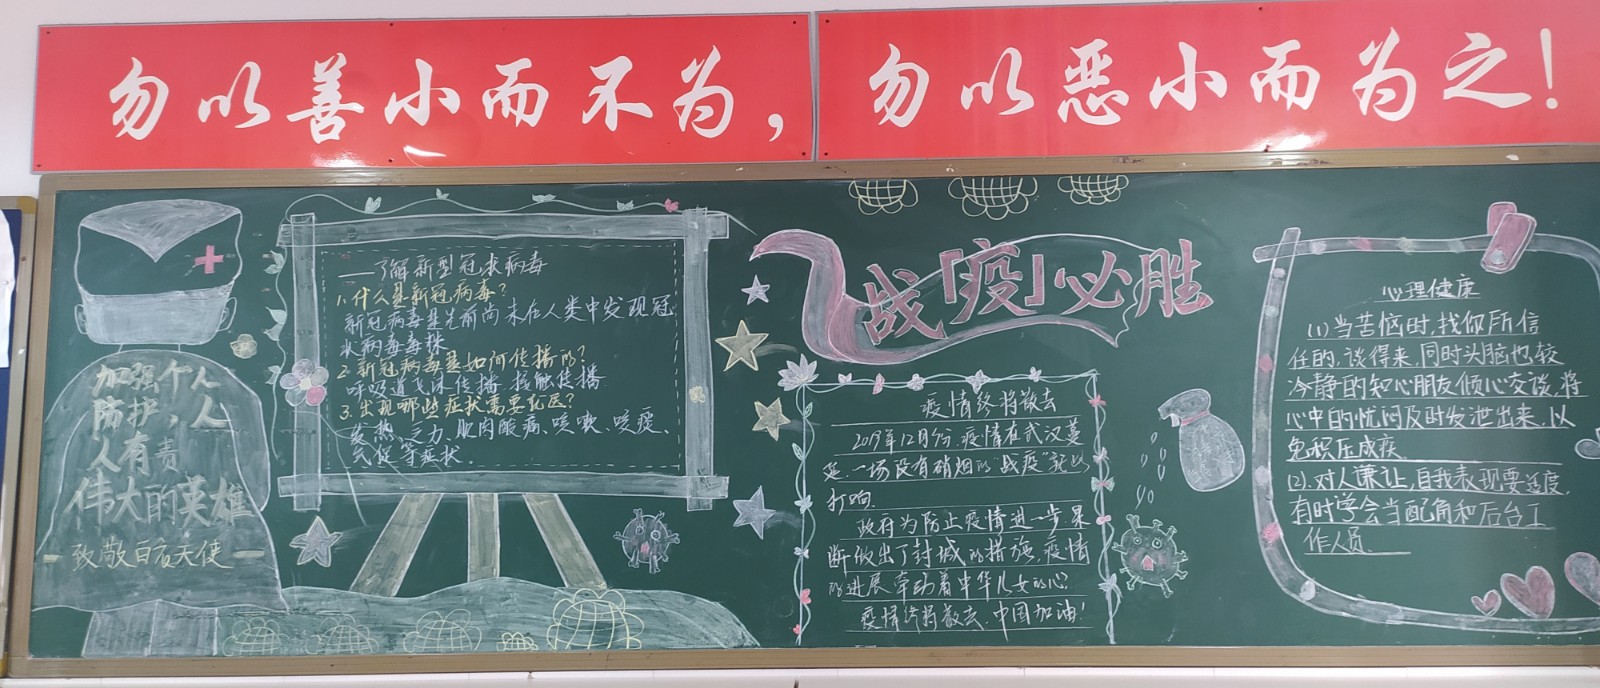 勿以善小而不为，
勿以恶小而为之！
加强个人
防护，人
人有责
伟大的英雄
致敬白衣天使
——了解新型冠状病毒
1.什么是新冠病毒？
新冠病毒是先前尚未在人类中发现冠
状病毒毒株
2.新冠病毒是如何传播的？
呼吸道飞沫传播 接触传播
3.出现哪些症状需要就医？
发热、乏力、肌肉酸痛、咳嗽、咳痰、
气促等症状.
战「疫」必胜
疫情终将散去
2019年12月份,疫情在武汉蔓
延.一场没有硝烟的"战疫"就此
打响.
政府为防止疫情进一步果
断做出了封城的措施,疫情
的进展牵动着中华儿女的心?
疫情终将散去,中国加油!
心理健康
(1)当苦恼时,找你所信
任的,谈得来,同时头脑也较
冷静的知心朋友倾心交谈,将
心中的忧闷及时发泄出来,以
免积压成疾.
(2).对人谦让,自我表现要适度,
有时学会当配角和后台工
作人员.